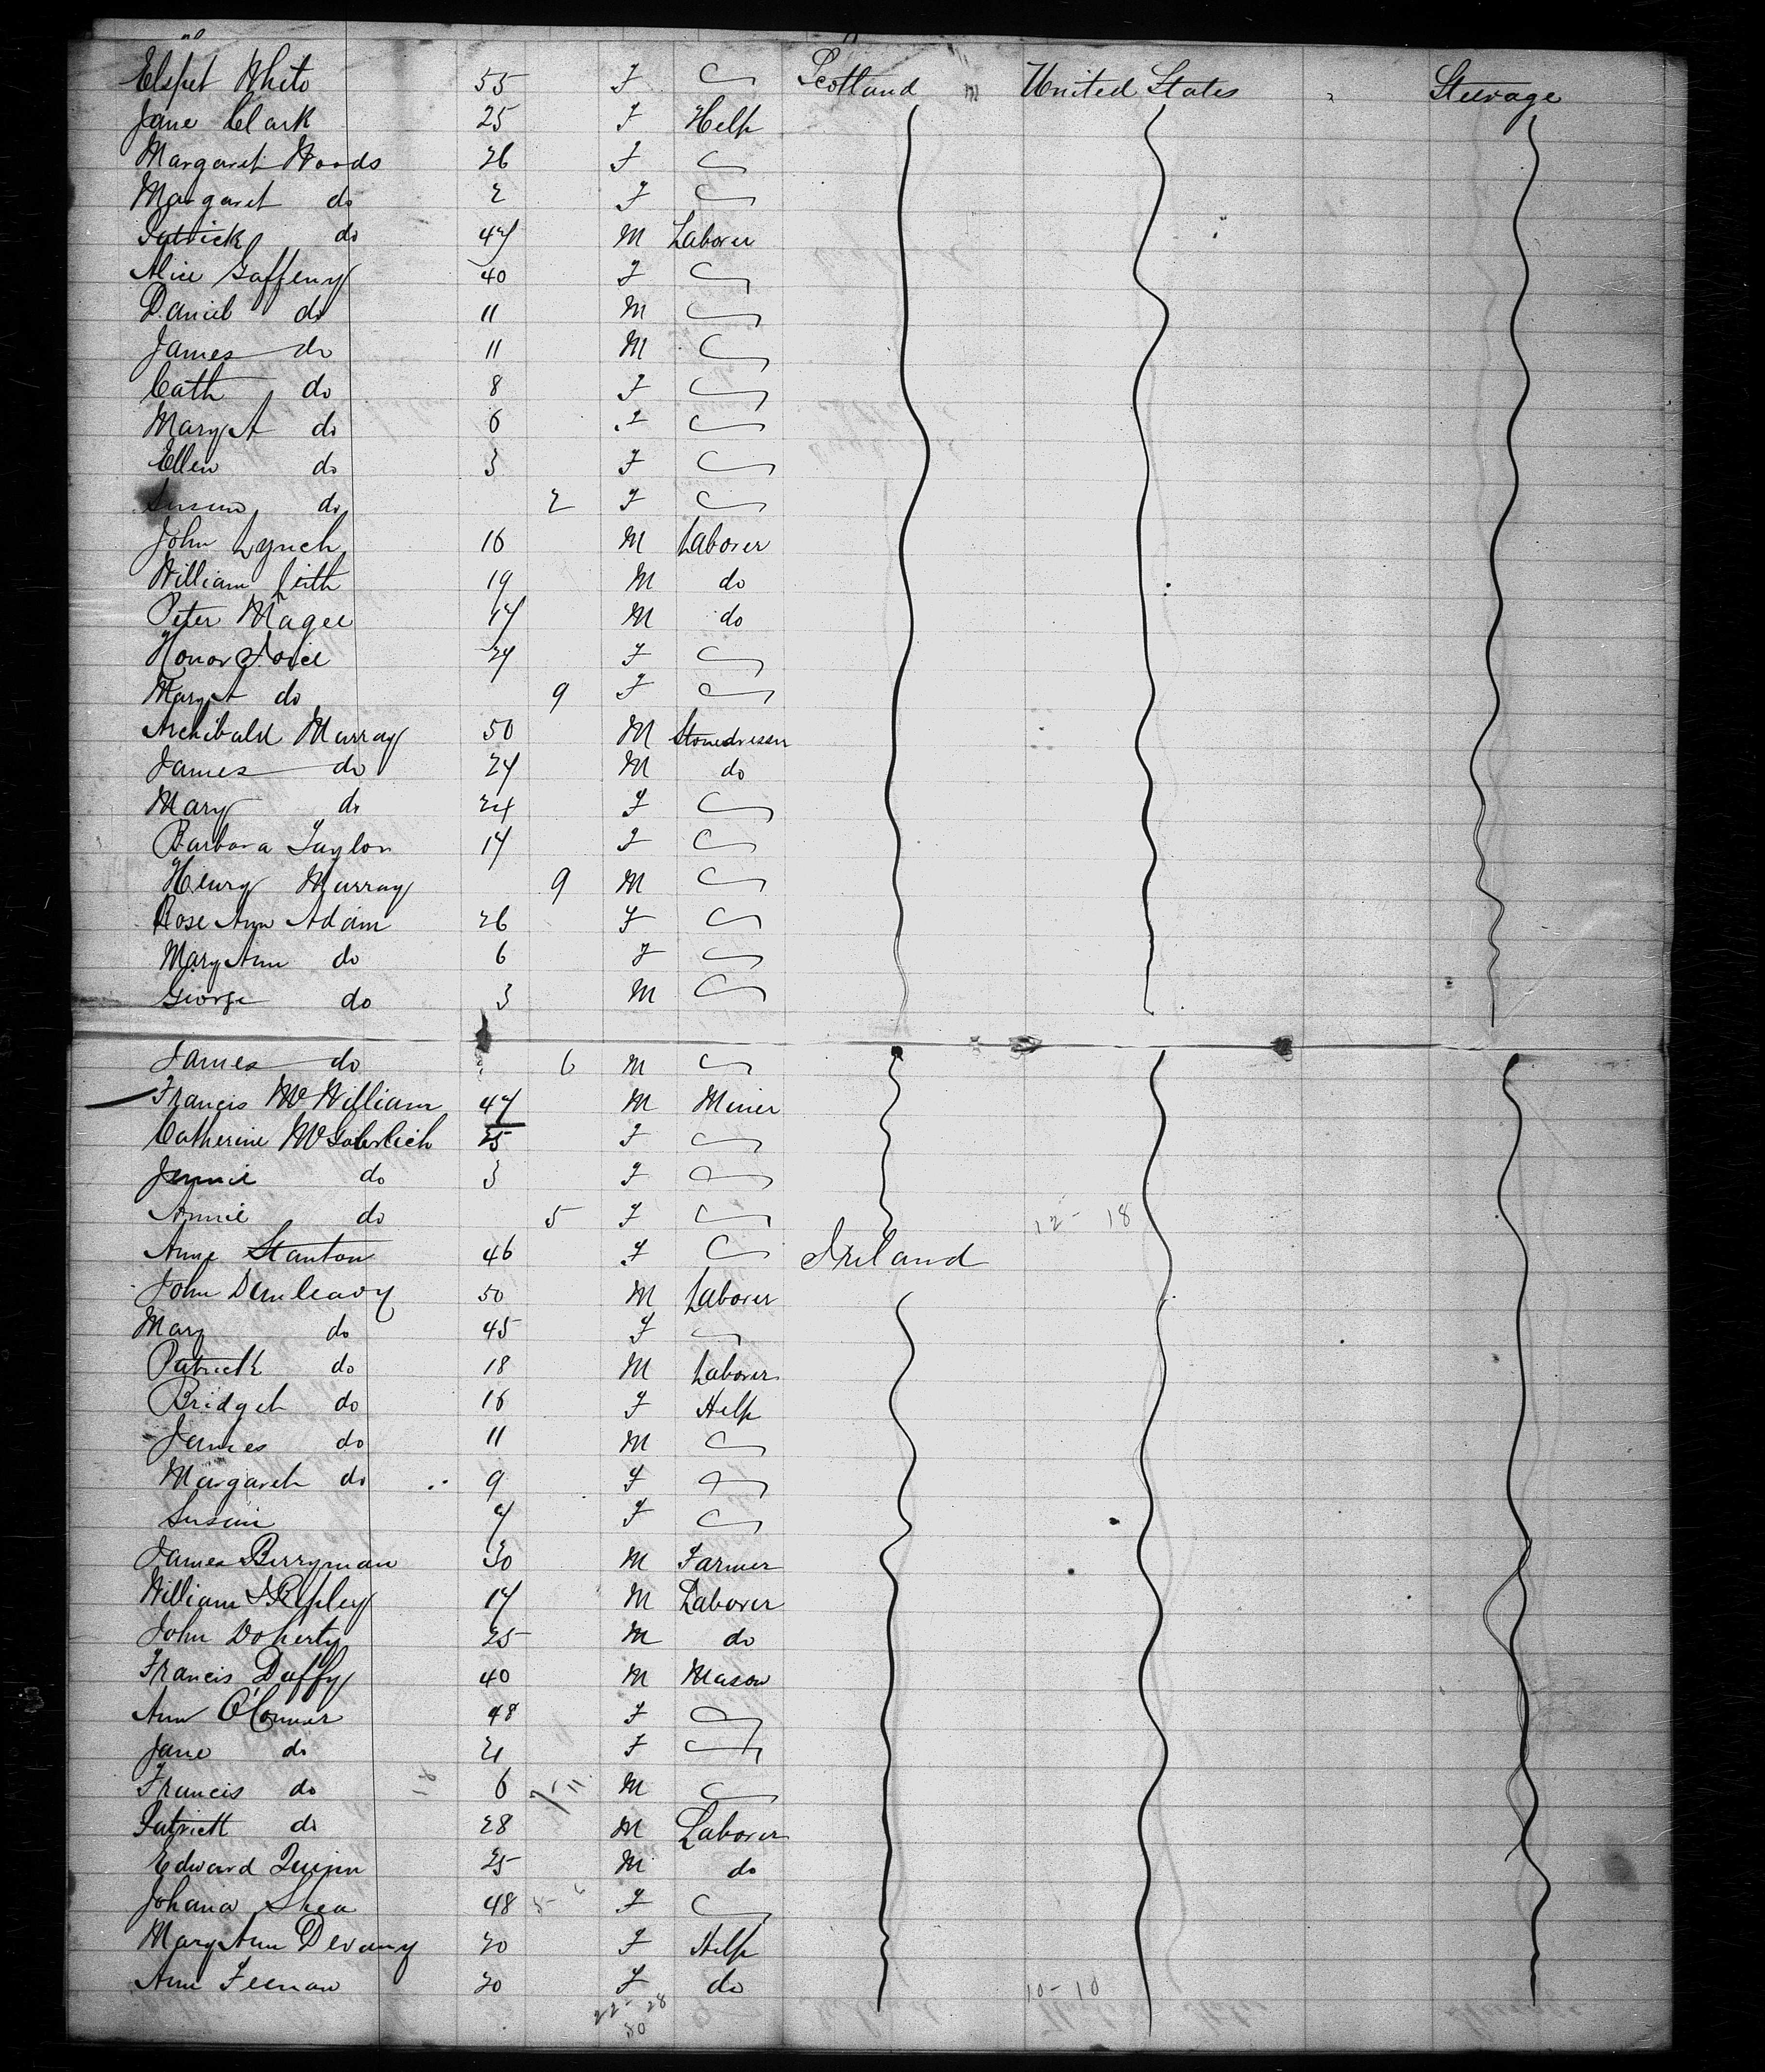 Elspet White 55 F Scotland United States Steerage
Jane Clark 25 F Help
Margaret Woods 26 F
Margaret do 2 F
Patrick do 47 M Laborer
Alice Gaffeny 40 F
Daniel do 11 M
James do 11 M
Cath do 8 F
Mary A do 6 F
Ellen do 3 F
Susan do 2 F
John Lynch 16 M Laborer
William Leith 19 M do
Peter Magee 17 M do
Honor 27 F
Mary A do 9 F
Archibald Murray 50 M Stonedresser
James do 27 M do
Mary do 24 F
Barbara Taylor 17 F
Henry Murray 9 M
Rose Ann Adam 26 F
Mary Ann do 6 F
George do 3 M
James do 6 M
Francis McWilliam 47 M Miner
Catherine 25 F
Jennie do 3 F
Annie do 5 F 12- 18
Anne Stanton 46 F Ireland
John Dunleavy 50 M Laborer
Mary do 45 F
Patrick do 18 M Laborer
Bridget do 16 F Help
James do 11 M
Margaret do 9 F
Susan 7 F
James Berryman 30 M Farmer
William 17 M Laborer
John Doherty 25 M do
Francis Duffy 40 M Mason
Ann O'Connor 48 F
Jane do 21 F
Francis do 6 M
Patrick do 28 M Laborer
Edward Quinn 25 M do
Johana Shea 48 F
Mary Ann Devany 20 F Help
Ann Feenan 20 F do 10-10
22- 28
50